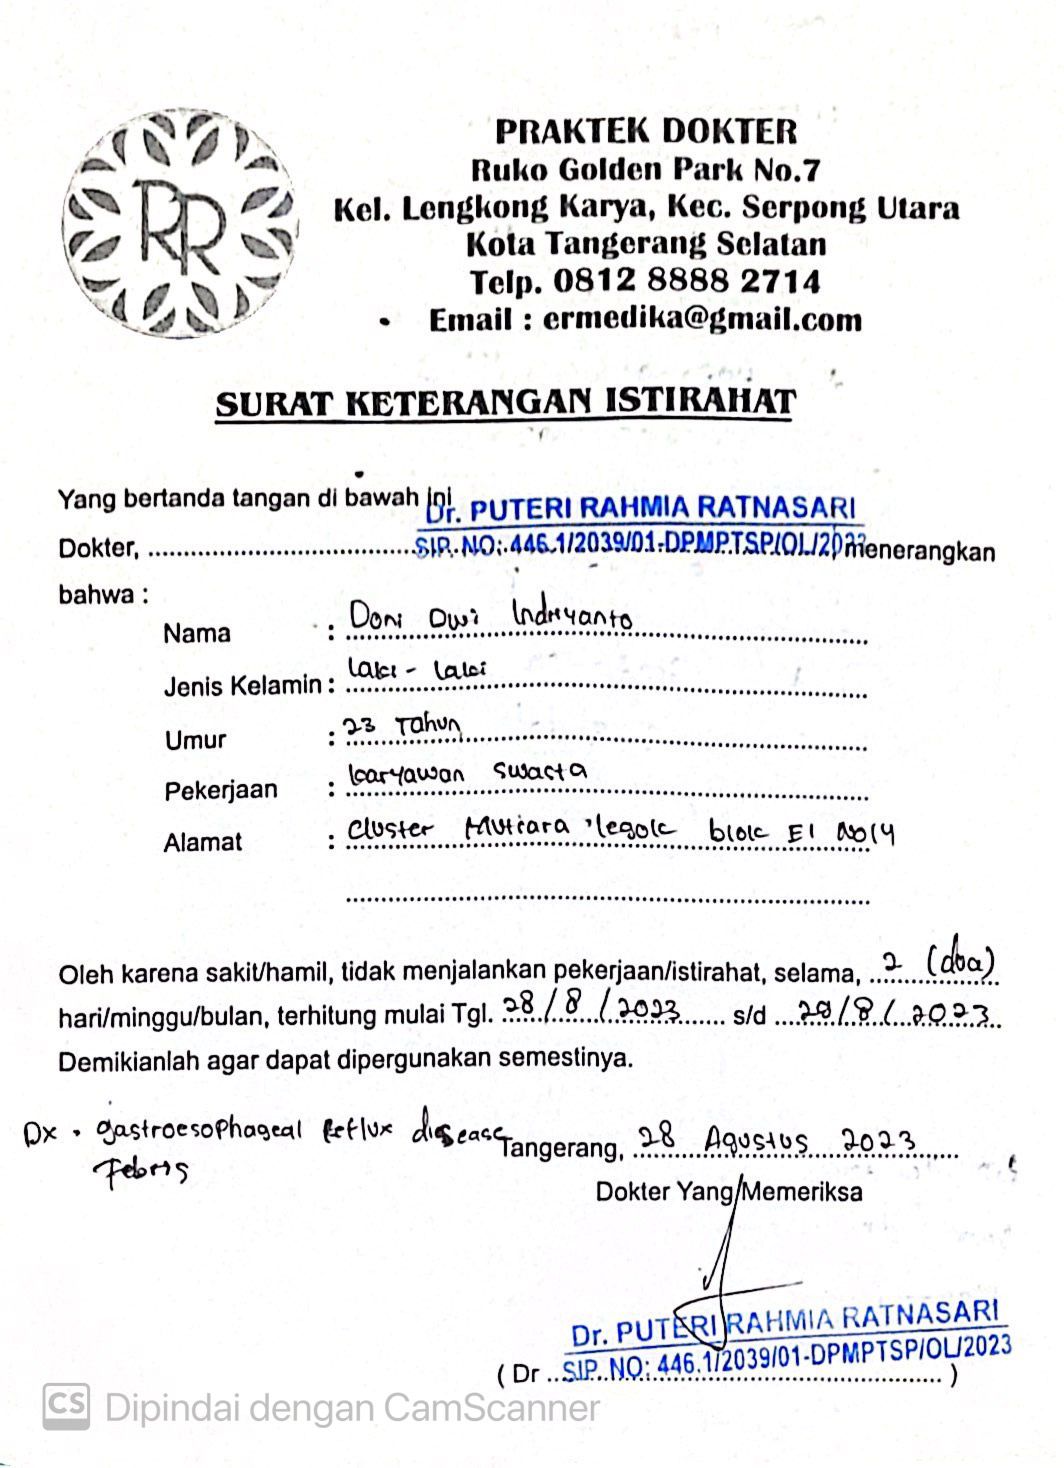 RR
PRAKTEK DOKTER
Ruko Golden Park No.7
Kel. Lengkong Karya, Kec. Serpong Utara
Kota Tangerang Selatan
Telp. 0812 8888 2714
Email : ermedika@gmail.com
SURAT KETERANGAN ISTIRAHAT
Yang bertanda tangan di bawah ini Dr. PUTERI RAHMIA RATNASARI
Dokter, SIP. NO: 446.1/2039/01-DPMPTSP/OL/2023, menerangkan
bahwa :
Nama : Doni Dwi Indriyanto
Jenis Kelamin : Laki - Laki
Umur : 23 Tahun
Pekerjaan : karyawan swasta
Alamat : Cluster Mutiara legok blok E1 No14
Oleh karena sakit/hamil, tidak menjalankan pekerjaan/istirahat, selama, 2 (dua)
hari/minggu/bulan, terhitung mulai Tgl. 28/8/2023 s/d 29/8/2023
Demikianlah agar dapat dipergunakan semestinya.
Dx . gastroesophageal reflux disease
Febris
Tangerang, 28 Agustus 2023
Dokter Yang Memeriksa
Dr. PUTERI RAHMIA RATNASARI
( Dr SIP. NO: 446.1/2039/01-DPMPTSP/OL/2023 )
CS Dipindai dengan CamScanner